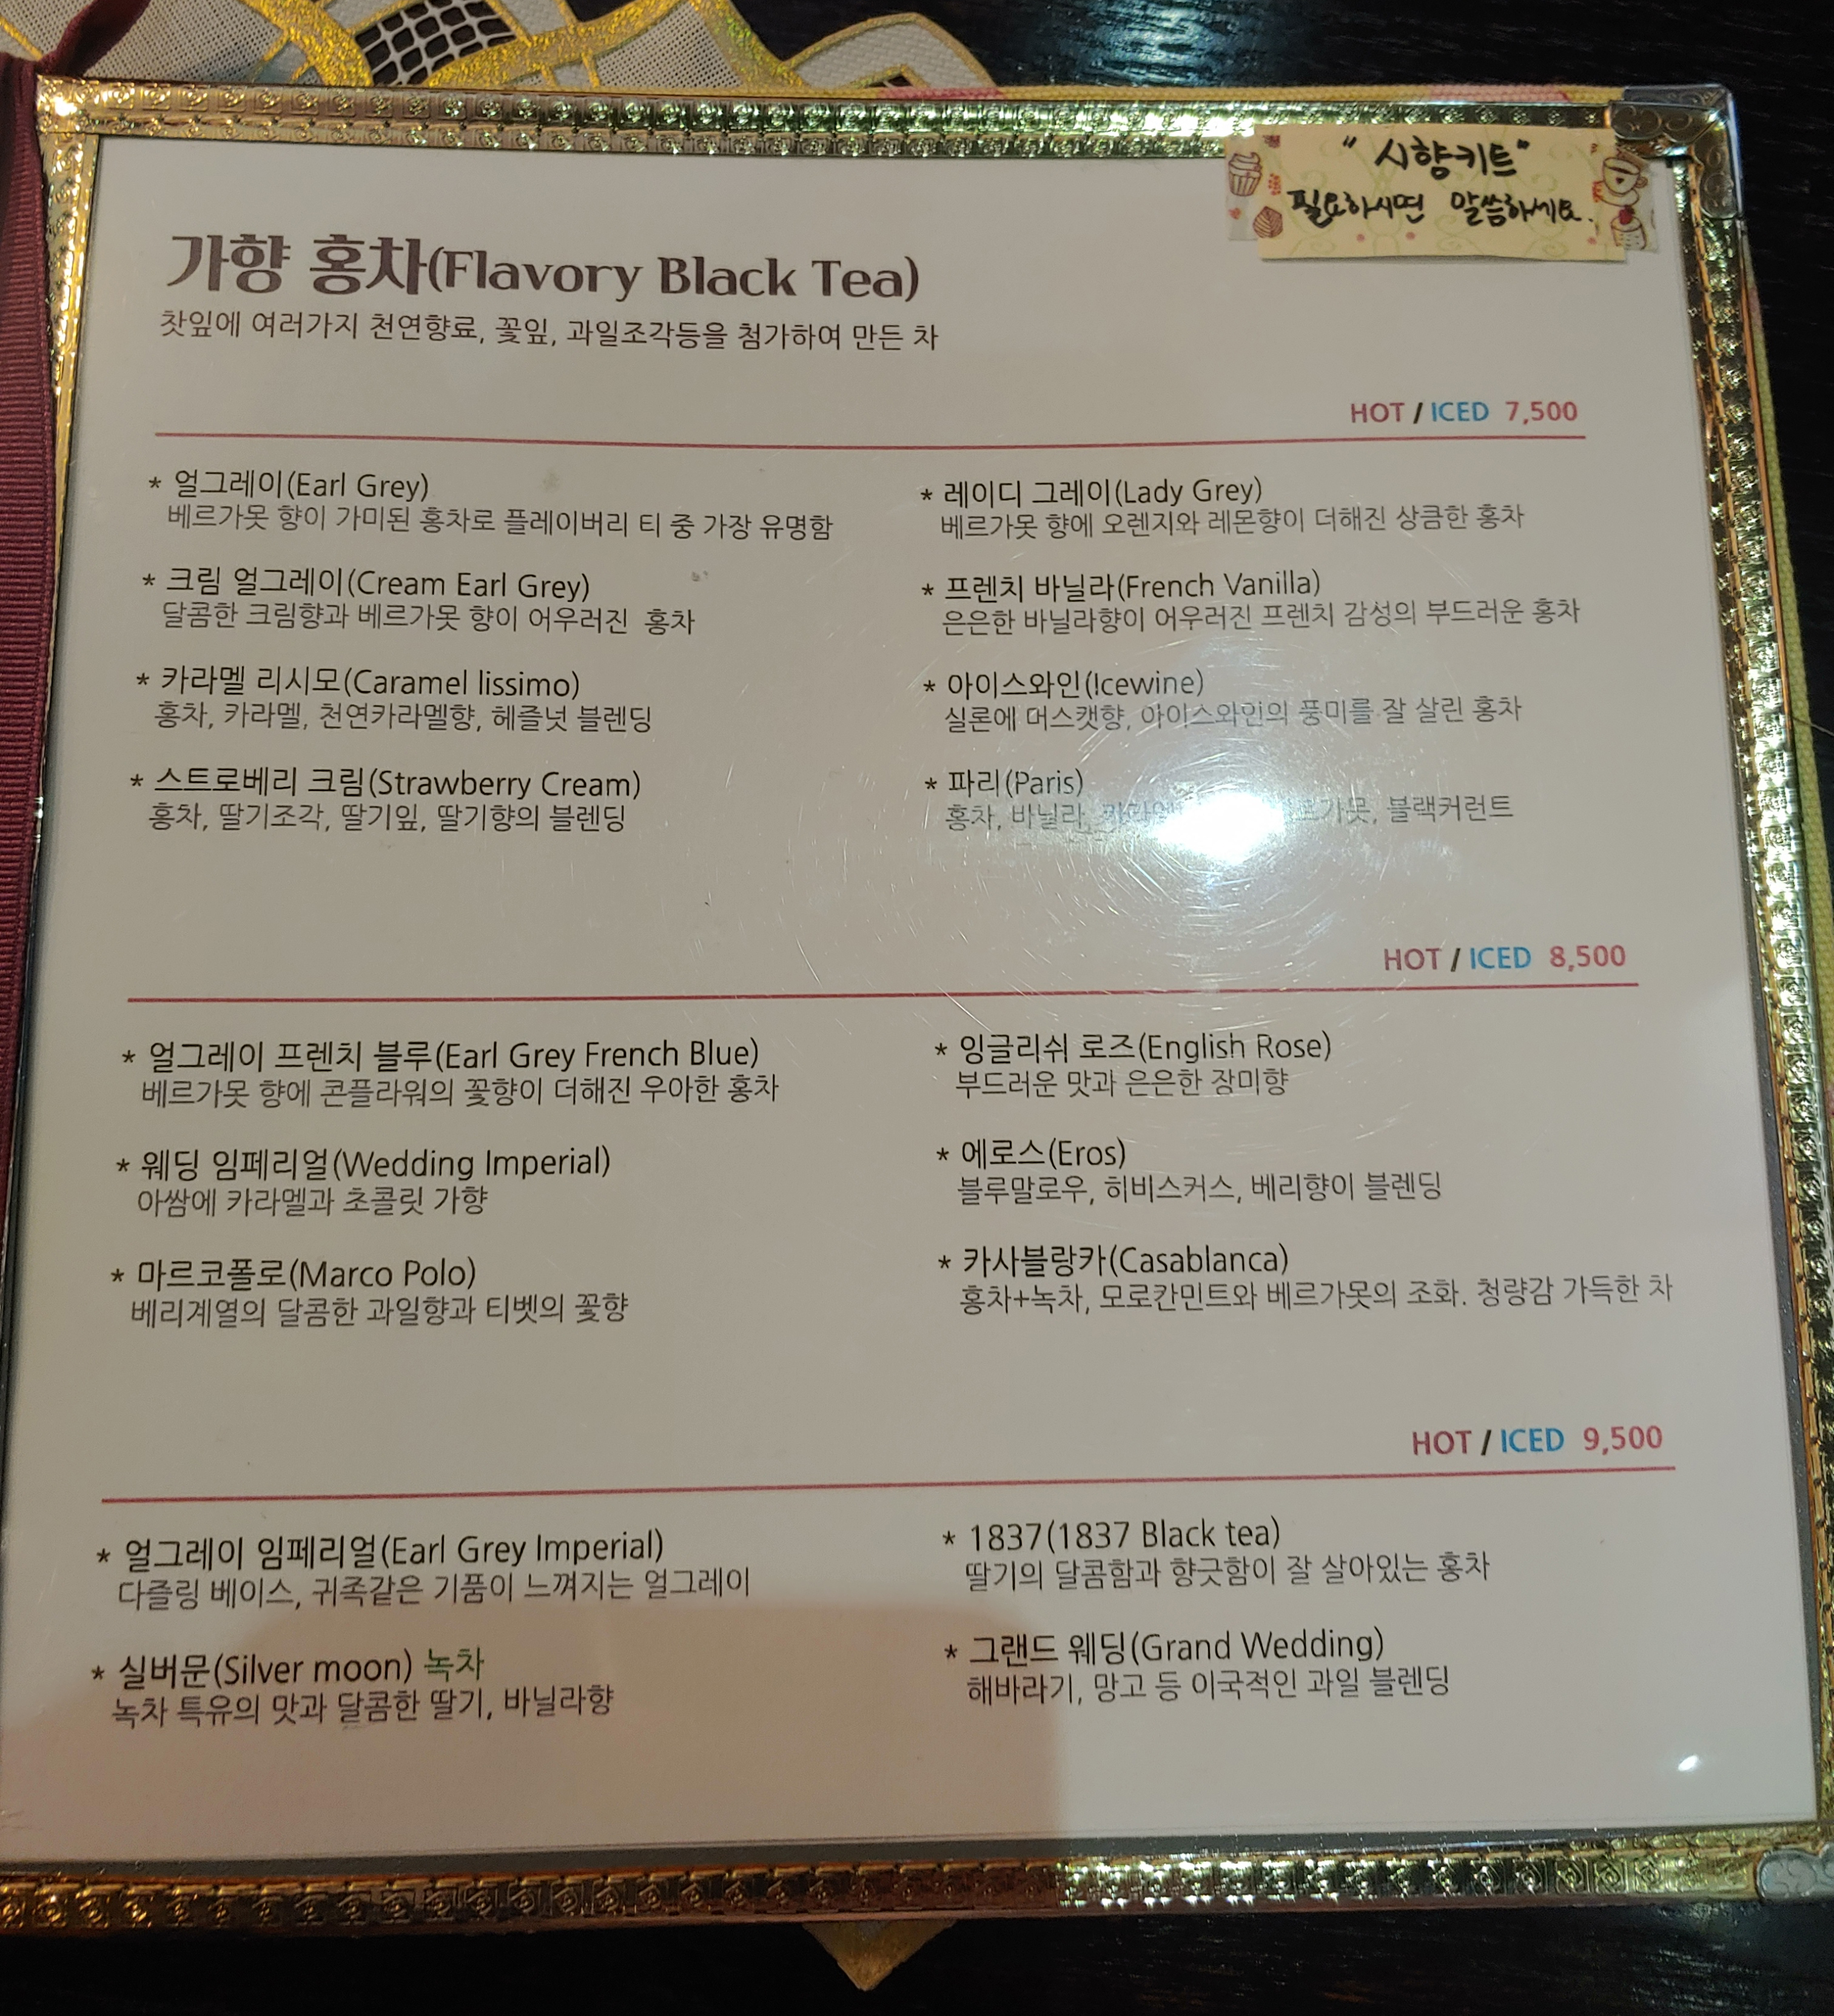 "시향키트"
필요하시면 말씀하세요.
가향 홍차(Flavory Black Tea)
찻잎에 여러가지 천연향료, 꽃잎, 과일조각등을 첨가하여 만든 차
HOT / ICED 7,500
* 얼그레이(Earl Grey)
베르가못 향이 가미된 홍차로 플레이버리 티 중 가장 유명함
* 크림 얼그레이(Cream Earl Grey)
달콤한 크림향과 베르가못 향이 어우러진 홍차
* 카라멜 리시모(Caramel lissimo)
홍차, 카라멜, 천연카라멜향, 헤즐넛 블렌딩
* 스트로베리 크림(Strawberry Cream)
홍차, 딸기조각, 딸기잎, 딸기향의 블렌딩
* 레이디 그레이(Lady Grey)
베르가못 향에 오렌지와 레몬향이 더해진 상큼한 홍차
* 프렌치 바닐라(French Vanilla)
은은한 바닐라향이 어우러진 프렌치 감성의 부드러운 홍차
* 아이스와인(Icewine)
실론에 머스캣향, 아이스와인의 풍미를 잘 살린 홍차
* 파리(Paris)
홍차, 바닐라, 블랙커런트
HOT / ICED 8,500
* 얼그레이 프렌치 블루(Earl Grey French Blue)
베르가못 향에 콘플라워의 꽃향이 더해진 우아한 홍차
* 웨딩 임페리얼(Wedding Imperial)
아쌈에 카라멜과 초콜릿 가향
* 마르코폴로(Marco Polo)
베리계열의 달콤한 과일향과 티벳의 꽃향
* 잉글리쉬 로즈(English Rose)
부드러운 맛과 은은한 장미향
* 에로스(Eros)
블루말로우, 히비스커스, 베리향이 블렌딩
* 카사블랑카(Casablanca)
홍차+녹차, 모로칸민트와 베르가못의 조화. 청량감 가득한 차
HOT / ICED 9,500
* 얼그레이 임페리얼(Earl Grey Imperial)
다즐링 베이스, 귀족같은 기품이 느껴지는 얼그레이
* 실버문(Silver moon) 녹차
녹차 특유의 맛과 달콤한 딸기, 바닐라향
* 1837(1837 Black tea)
딸기의 달콤함과 향긋함이 잘 살아있는 홍차
* 그랜드 웨딩(Grand Wedding)
해바라기, 망고 등 이국적인 과일 블렌딩